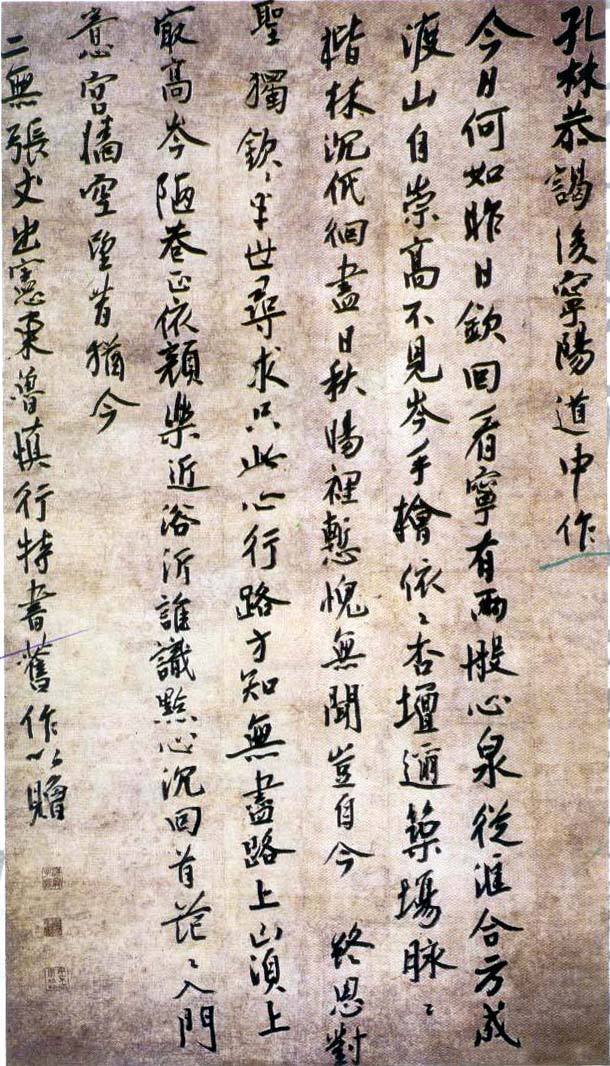 孔林恭謁後寧陽道中作
今日何如昨日欽回看寧有兩般心泉從滙合方成
渡山自崇高不見岑手檜依〻杏壇邇築場脉〻
楷林沉低徊盡日秋陽裡慙愧無聞豈自今 終思對
聖獨欽〻半世尋求只此心行路方知無盡路上山須上
冣高岑陋巷正依顏樂近浴沂誰識點心沉回首茫〻入門
意宮牆空望昔猶今
二無張丈出憲東魯慎行特書舊作以贈